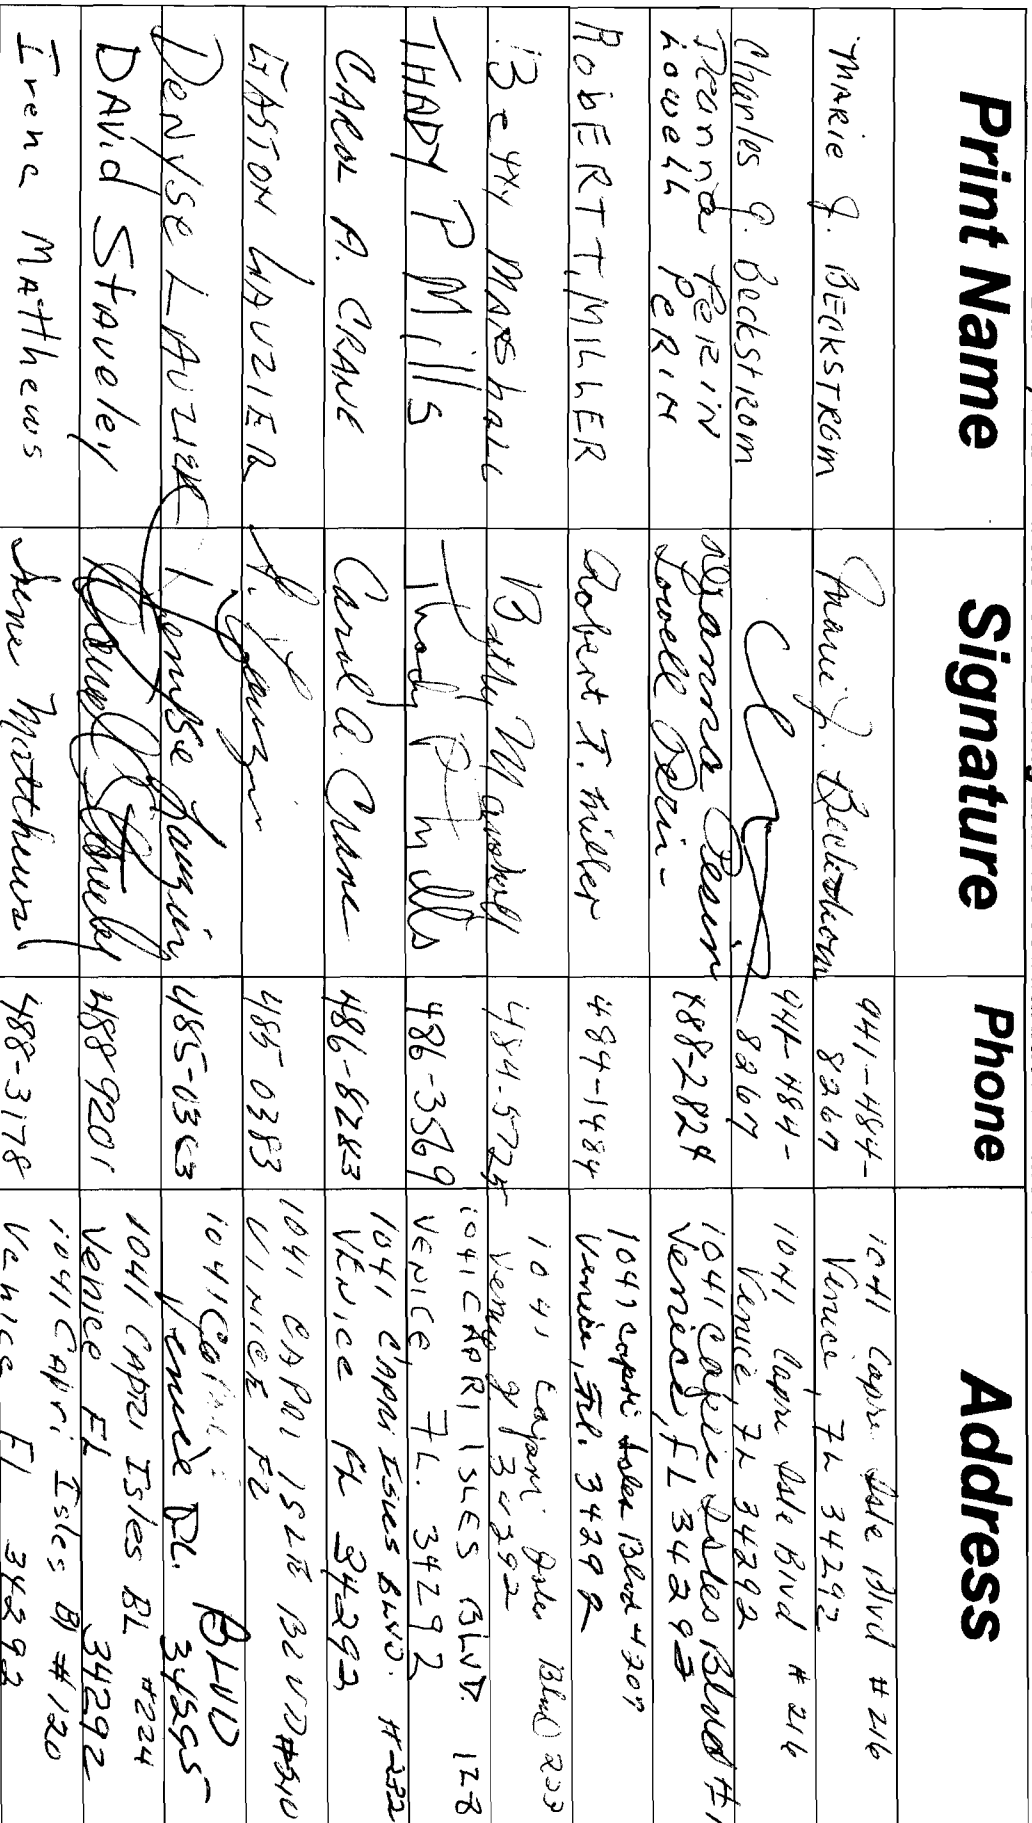 Print Name Signature Phone Address
MARIE J. BECKSTROM Marie J. Beckstrom 941-484-8267 1041 Capri Isle Blvd # 216
Venice, FL 34292
Charles J. Beckstrom 941-484-8267 1041 Capri Isle Blvd # 216
Venice FL 34292
Deanna PERIN Deanna Perin 488-2824 1041 Capri Isles Blvd #1
Lowell PERIN Lowell Perin Venice, FL 34292
RobERT T. MILLER Robert T. Miller 484-1484 1041 Capri Isles Blvd #207
Venice, Fl. 34292
Betty Marshall Betty Marshall 484-5725 1041 Capri Isles Blvd 233
Venice Fl 34292
THADY P Mills Thady P Mills 486-3569 1041 CAPRI ISLES BLVD. 128
VENICE, FL. 34292
CAROL A. CRANE Carol A. Crane 486-8283 1041 CAPRI ISLES BLVD. #232
VENICE FL 34292
GASTON LAUZIER G. Lauzier 485 0383 1041 CAPRI ISLE BLVD #310
VINICE FL
DENYSE LAUZIER Denyse Lauzier 485-0383 1041 Capri BLVD
Venice FL. 34285
DAVID Staveley 488 9201 1041 CAPRI Isles BL #224
Venice FL 34292
Irene Matthews Irene Matthews 488-3178 1041 Capri Isles Bl #120
Venice Fl 34292